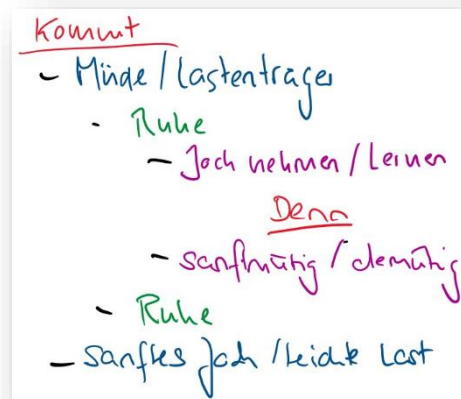 Kommt
- Müde / Lastenträger
- Ruhe
- Joch nehmen / Lernen
Denn
- sanftmütig / demütig
- Ruhe
- Sanftes Joch / leichte Last